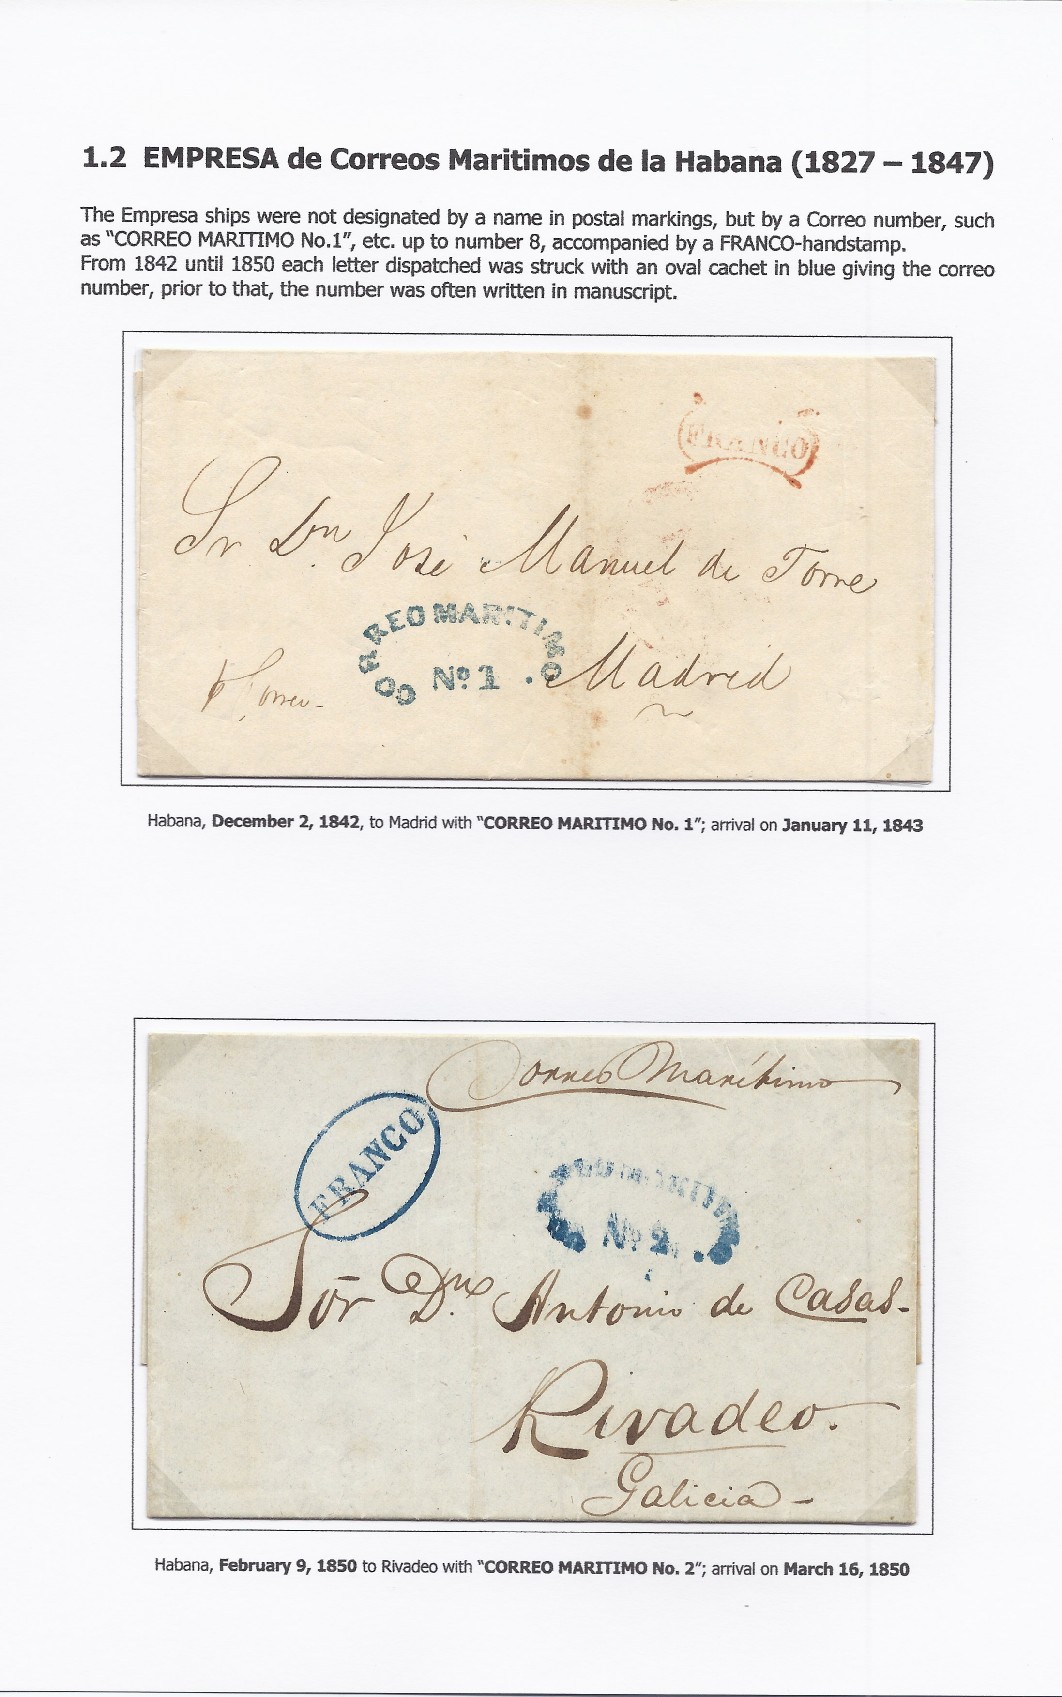 1.2 EMPRESA de Correos Maritimos de la Habana (1827 – 1847)
The Empresa ships were not designated by a name in postal markings, but by a Correo number, such
as "CORREO MARITIMO No.1", etc. up to number 8, accompanied by a FRANCO-handstamp.
From 1842 until 1850 each letter dispatched was struck with an oval cachet in blue giving the correo
number, prior to that, the number was often written in manuscript.
FRANCO
Sr Dn José Manuel de Torre
CORREO MARITIMO
Nº 1
Madrid
Correo
Habana, December 2, 1842, to Madrid with "CORREO MARITIMO No. 1"; arrival on January 11, 1843
Correo Marítimo
FRANCO
Nº 2
Sör Dn Antonio de Casas-
Rivadeo.
Galicia -
Habana, February 9, 1850 to Rivadeo with "CORREO MARITIMO No. 2"; arrival on March 16, 1850